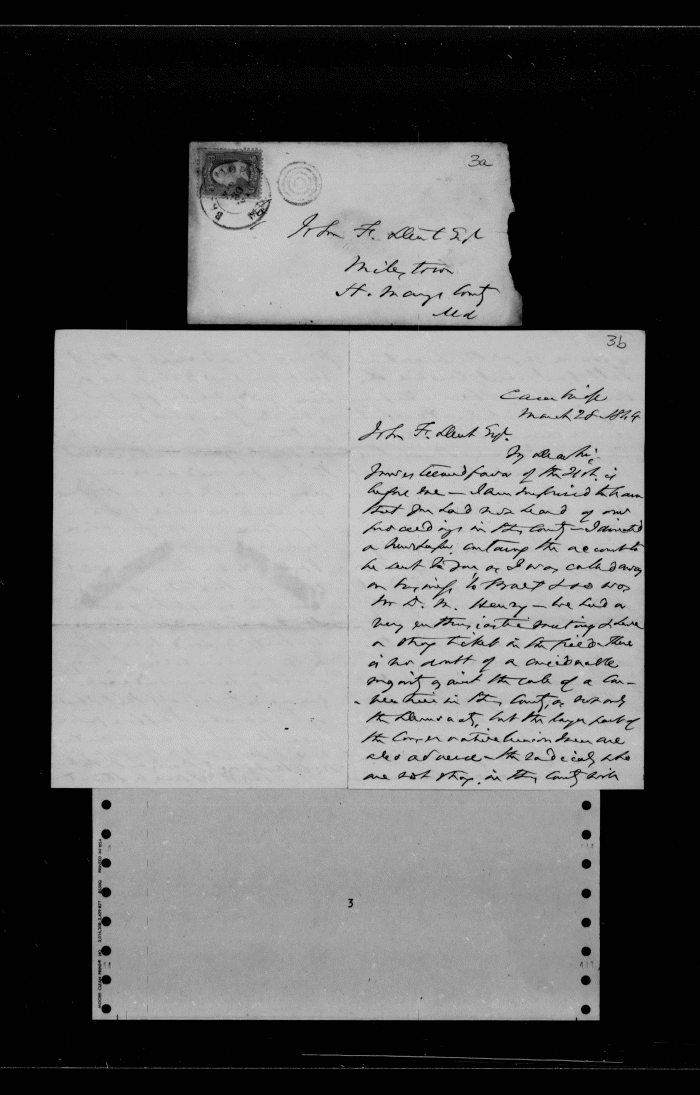 3a
John F. Dent Esqr
Milestown
St. Marys County
Md
3b
Cambridge
March 28 1864
John F. Dent Esqr.
My Dear Sir,
Your esteemed favor of the 21st. is
before me — I am surprised to learn
that you had not heard of our
proceedings in this County — I directed
a Newspaper containing the account to
be sent to you as I was called away
on business to Balt & so was
Mr D. M. Henry — We had a
very enthusiastic meeting & have
a strong ticket in the field. There
is no doubt of a considerable
majority against the call of a Con-
vention in this County, as not only
the Democrats, but the larger part of
the Conservative Union men are
also adverse — the radicals who
are not strong in this County with
3